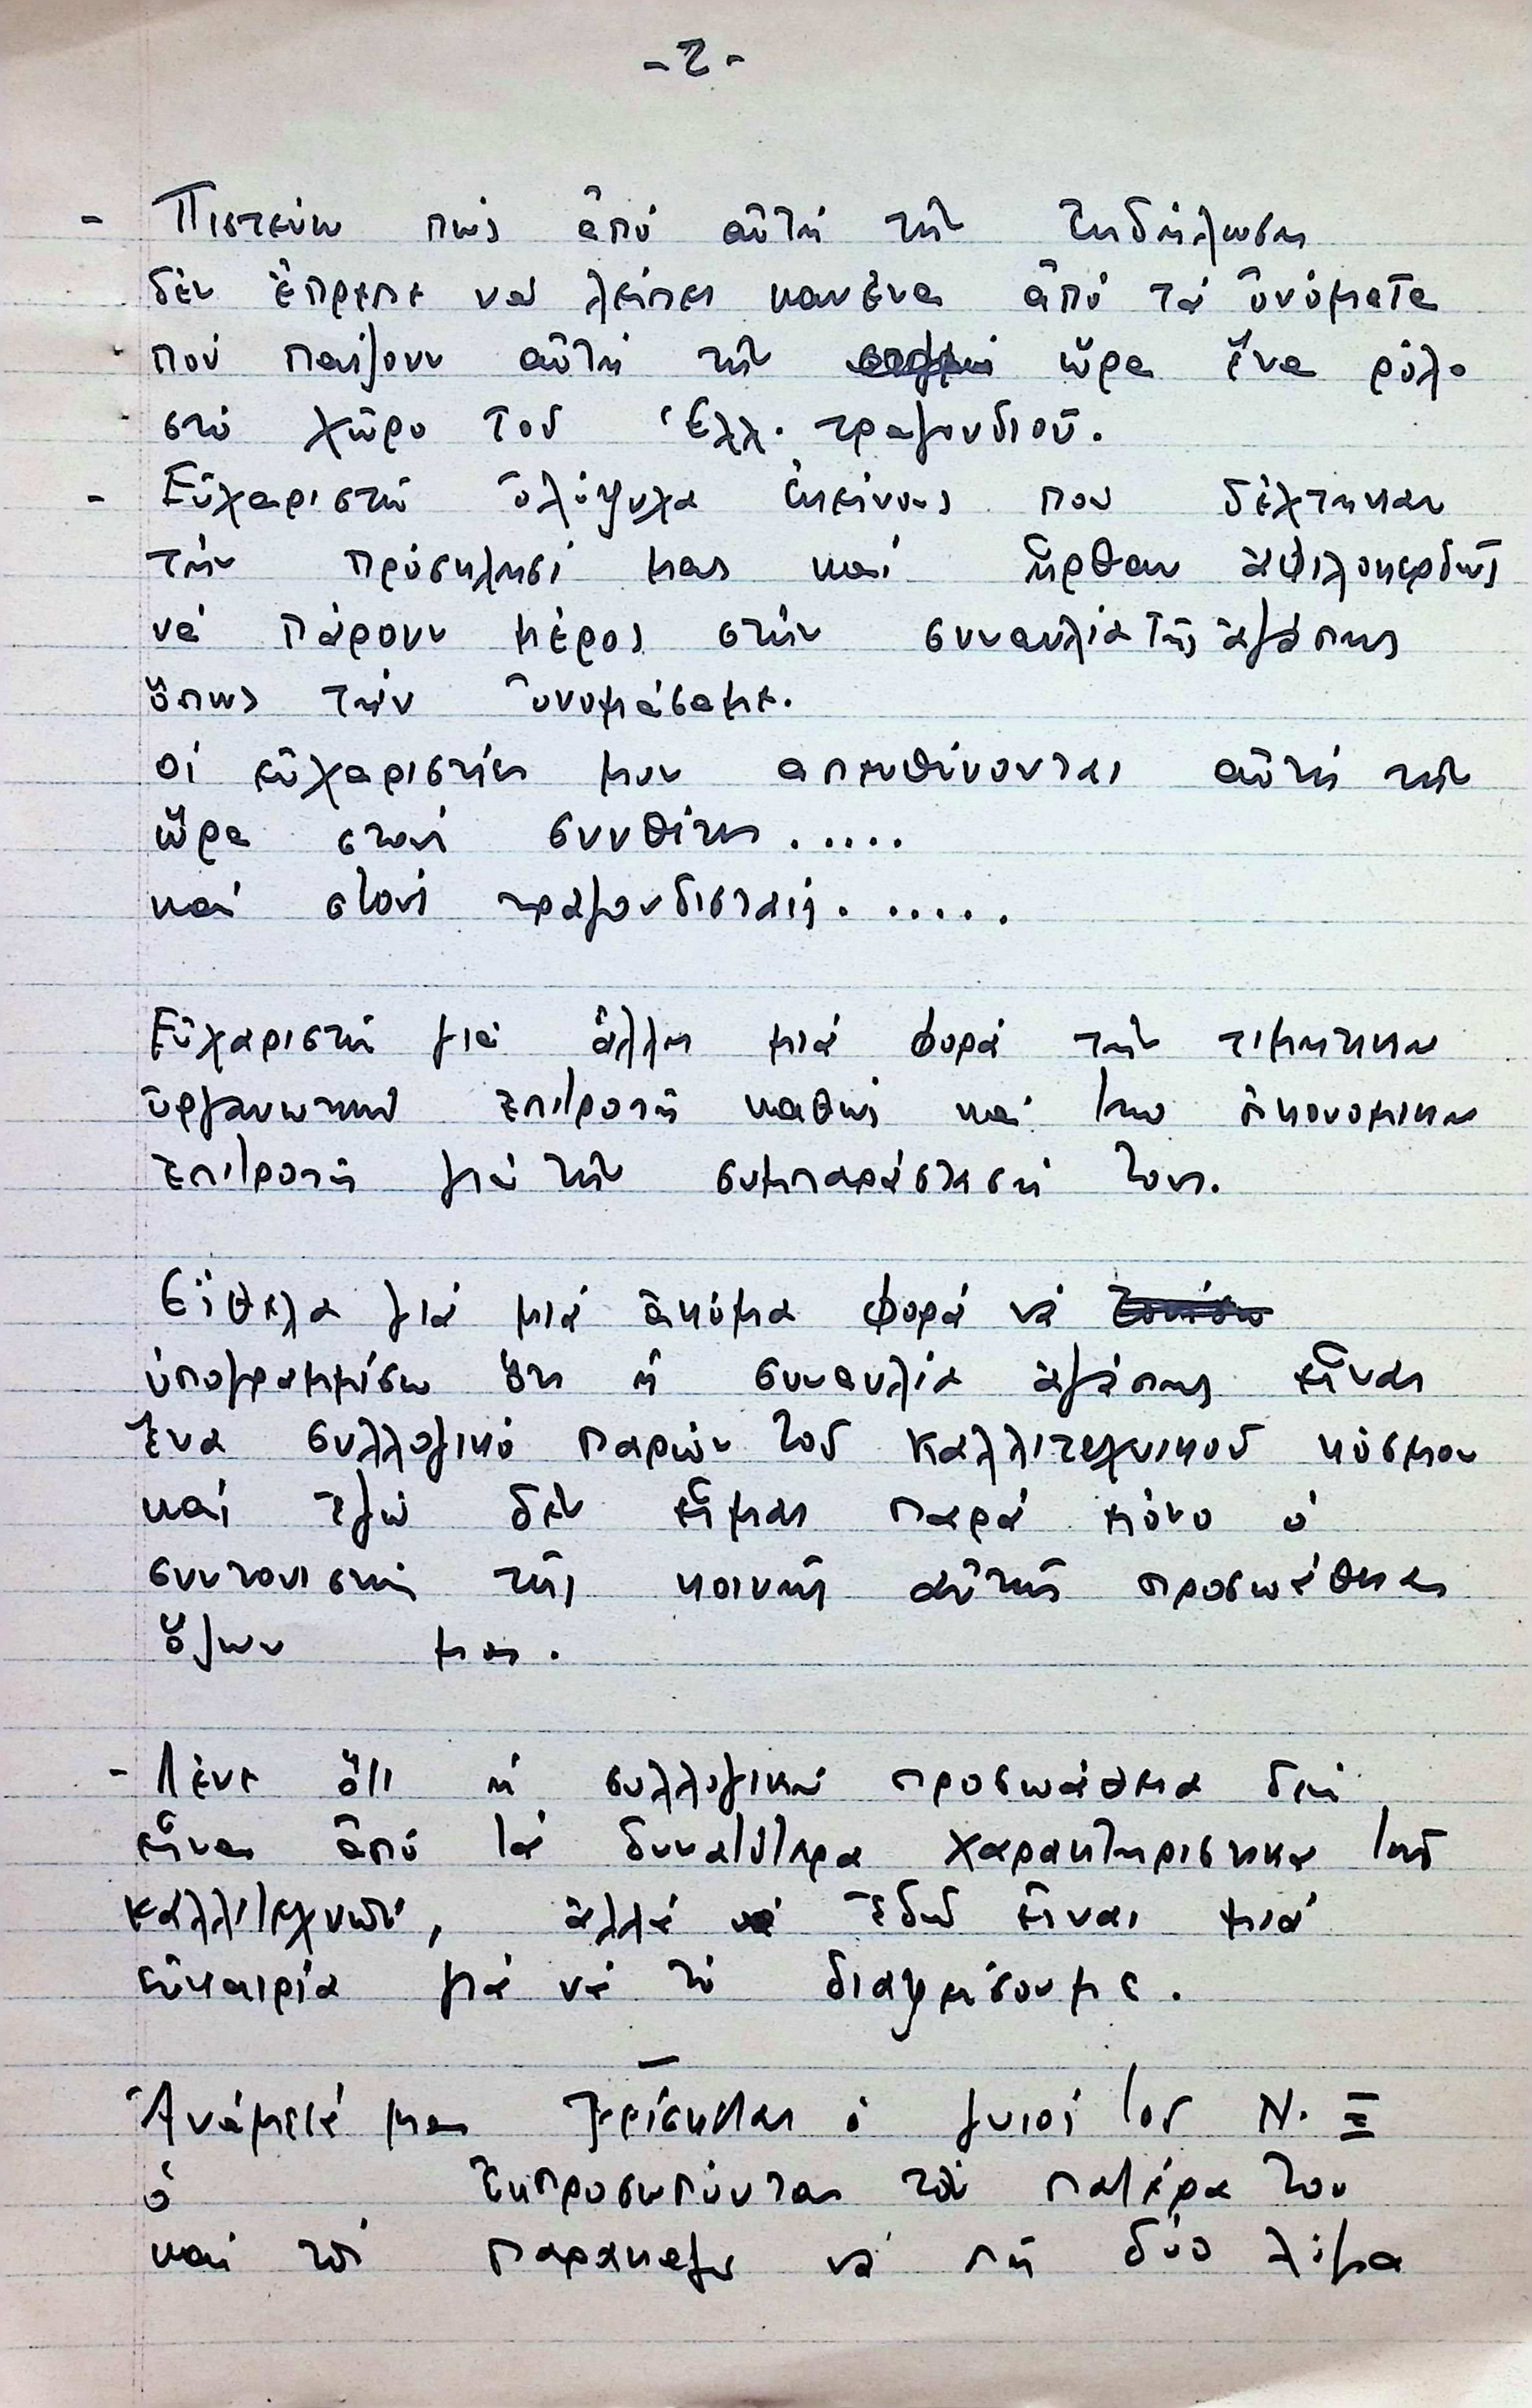 - 2 -
- Πιστεύω πώς ἀπό αὐτή τήν ἐκδήλωση
δέν ἔπρεπε νά λείπει κανένα ἀπό τά ὀνόματα
πού παίζουν αὐτή τήν ὥρα ἕνα ρόλο
στό χῶρο τοῦ Ἑλλ. τραγουδιοῦ.
- Εὐχαριστῶ ὁλόψυχα ἐκείνους πού δέχτηκαν
τήν πρόσκλησή μας καί ἦρθαν ἀφιλοκερδῶς
νά πάρουν μέρος στήν συναυλία τῆς ἀγάπης
ὅπως τήν ὀνομάσαμε.
Οἱ εὐχαριστίες μου απευθύνονται αὐτή τήν
ὥρα στούς συνθέτες.....
καί στούς τραγουδιστές......
Εὐχαριστῶ γιά ἄλλη μιά φορά τήν τιμητική
ὀργανωτική ἐπιτροπή καθώς καί τήν οἰκονομική
ἐπιτροπή γιά τήν συμπαράστασή τους.
Θἄθελα γιά μιά ἀκόμα φορά νά τονίσω
ὑπογραμμίσω ὅτι ἡ συναυλία ἀγάπης εἶναι
ἕνα συλλογικό παρών τοῦ καλλιτεχνικοῦ κόσμου
καί ἐγώ δέν εἶμαι παρά μόνο ὁ
συντονιστής τῆς κοινῆς αὐτῆς προσπάθειας
ὅλων μας.
- Λένε ὅτι ἡ συλλογική προσπάθεια δέν
εἶναι ἀπό τά δυνατότερα χαρακτηριστικά τῶν
καλλιτεχνῶν, ἀλλά ἐδῶ εἶναι μιά
εὐκαιρία γιά νά τό διαψεύσουμε.
Ἀνάμεσά μας βρίσκεται ὁ γυιός τοῦ Ν. Ξ
ὁ ἐκπροσωπώντας τόν πατέρα του
καί τόν παρακαλῶ νά πῆ δύο λόγια